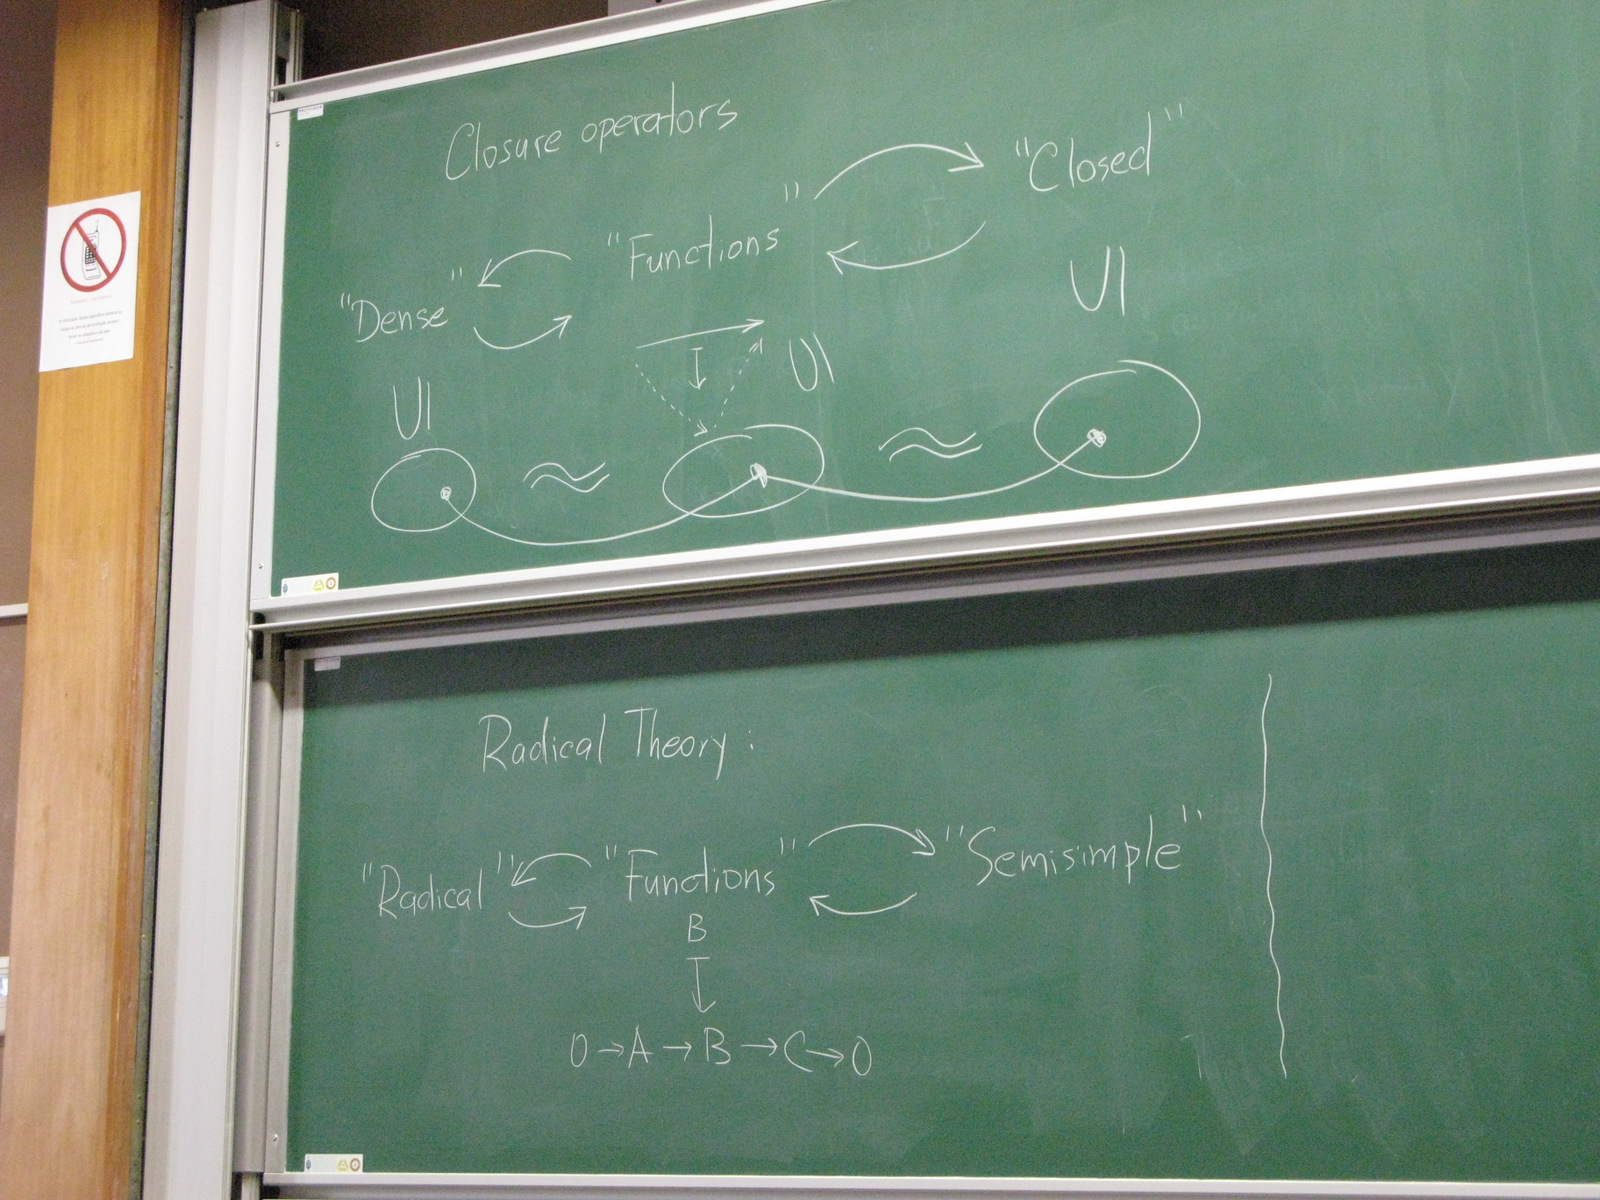 Closure operators
"Closed"
"Functions"
"Dense"
U|
U|
U|
≈ ≈
Radical Theory:
"Radical" "Functions" "Semisimple"
B
0→A→B→C→0